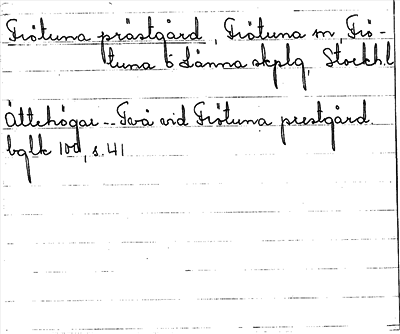 Frötuna prästgård, Frötuna sn, Frö-
tuna o Länna skplg, Stockh.l
Ättehögar -- Två vid Frötuna prestgård.
bglk 100, s. 41